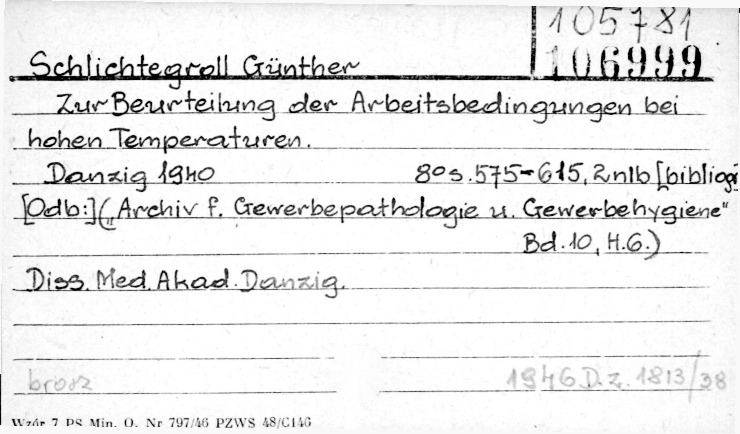 105781
106999
Schlichtegroll Günther
Zur Beurteilung der Arbeitsbedingungen bei
hohen Temperaturen.
Danzig 1940 8° s. 575-615, 2 nlb [bibliogr
[Odb:] („Archiv f. Gewerbepathologie u. Gewerbehygiene"
Bd. 10, H. 6.)
Diss. Med. Akad. Danzig.
brosz 1946 D. z. 1813/38
Wzór 7 PS Min. O. Nr 797/46 PZWS 48/C146